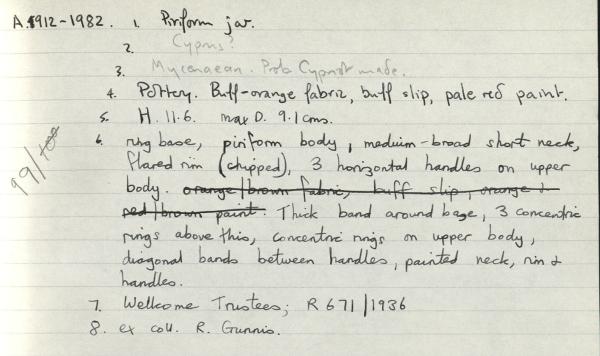 A.1912-1982. 1. Piriform jar.
2. Cyprus?
3. Mycenaean. Prob Cypriot made.
4. Pottery. Buff-orange fabric, buff slip, pale red paint.
5. H. 11.6. max D. 9.1 cms.
6. ring base, piriform body, medium-broad short neck,
flared rim (chipped), 3 horizontal handles on upper
body. orange/brown fabric, buff slip, orange &
red/brown paint. Thick band around base, 3 concentric
rings above this, concentric rings on upper body,
diagonal bands between handles, painted neck, rim &
handles.
7. Wellcome Trustees; R 671/1936
8. ex coll. R. Gunnis.
99/